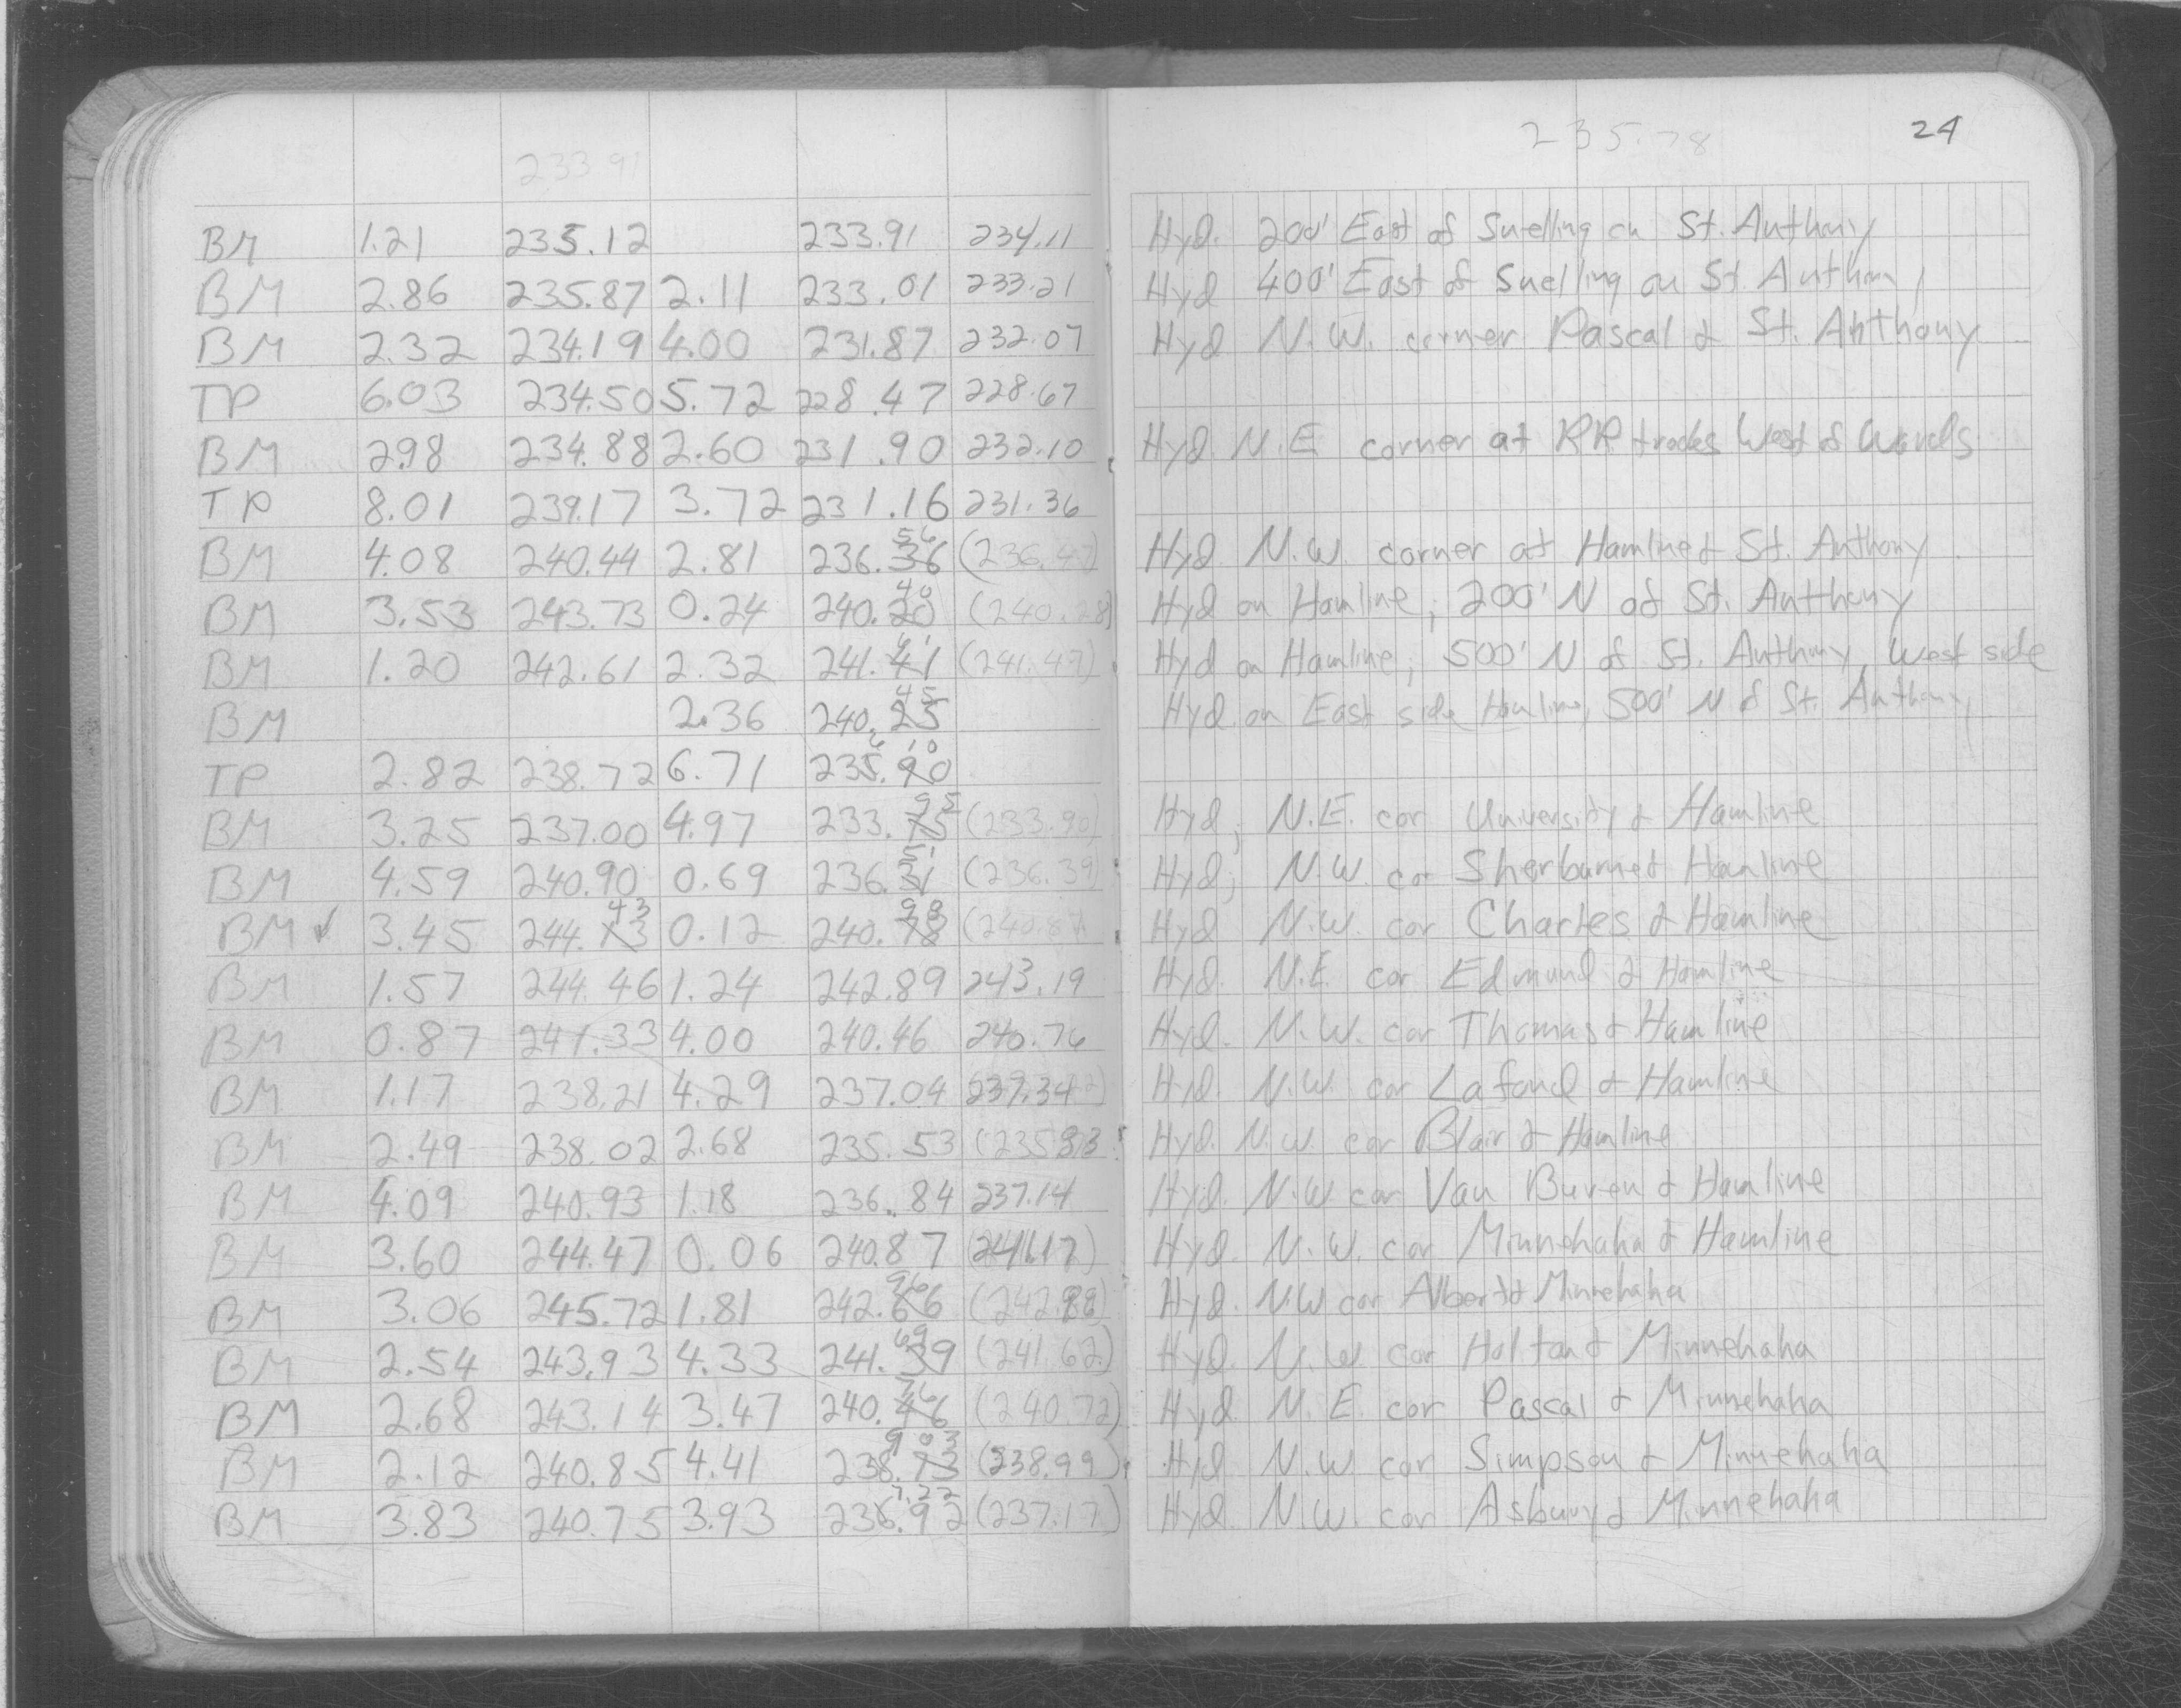 233.91 235.78 24
BM 1.21 235.12 233.91 234.11 Hyd. 200' East of Snelling on St. Anthony
BM 2.86 235.87 2.11 233.01 233.21 Hyd 400' East of Snelling on St. Anthony
BM 2.32 234.19 4.00 231.87 232.07 Hyd N.W. corner Pascal & St. Anthony
TP 6.03 234.50 5.72 228.47 228.67
BM 2.98 234.88 2.60 231.90 232.10 Hyd. N.E corner at RR tracks West of Wards
TP 8.01 239.17 3.72 231.16 231.36
BM 4.08 240.44 2.81 236.36 56 (236.47) Hyd N.W. corner at Hamline & St. Anthony
BM 3.53 243.73 0.24 240.20 40 (240.28) Hyd on Hamline, 200' N of St. Anthony
BM 1.20 242.61 2.32 241.41 61 (241.49) Hyd on Hamline, 500' N of St. Anthony, West side
BM 2.36 240.25 45 Hyd. on East side Hamline, 500' N of St. Anthony
TP 2.82 238.72 6.71 235.90 6 10
BM 3.25 237.00 4.97 233.75 95 (233.90) Hyd; N.E. cor University & Hamline
BM 4.59 240.90 0.69 236.31 51 (236.39) Hyd; N.W. cor Sherburne & Hamline
BM ✓ 3.45 244.13 43 0.12 240.78 98 (240.87) Hyd N.W. cor Charles & Hamline
BM 1.57 244.46 1.24 242.89 243.19 Hyd. N.E. cor Edmund & Hamline
BM 0.87 241.33 4.00 240.46 240.76 Hyd. N.W. cor Thomas & Hamline
BM 1.17 238.21 4.29 237.04 237.34 Hyd. N.W. cor Lafond & Hamline
BM 2.49 238.02 2.68 235.53 (235.83 Hyd. N.W. cor Blair & Hamline
BM 4.09 240.93 1.18 236.84 237.14 Hyd. N.W. cor Van Buren & Hamline
BM 3.60 244.47 0.06 240.87 (241.17) Hyd. N.W. cor Minnehaha & Hamline
BM 3.06 245.72 1.81 242.66 96 Hyd. N.W cor Albert & Minnehaha
BM 2.54 243.93 4.33 241.39 69 (241.62) Hyd. N.W. cor Holton & Minnehaha
BM 2.68 243.14 3.47 240.46 76 (240.72) Hyd N.E. cor Pascal & Minnehaha
BM 2.12 240.85 4.41 238.73 9 03 (238.99) Hyd N.W. cor Simpson & Minnehaha
BM 3.83 240.75 3.93 236.92 7.22 (237.17) Hyd N.W. cor Asbury & Minnehaha